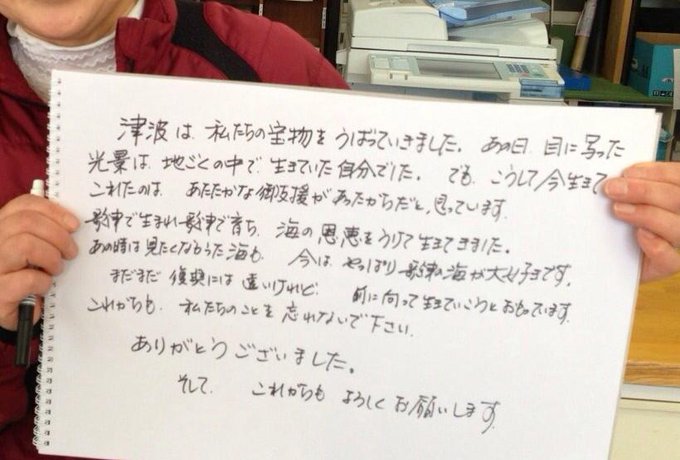 津波は 私たちの宝物をうばっていきました。 あの日、目に写った
光景は、地ごくの中で 生きていた自分でした。 でも、こうして今生きて
これたのは、 あたたかな御支援があったからだと、思っています。
歌津で生まれ歌津で育ち、海の恩恵をうけて生きてきました。
あの時は見たくなかった海も、 今は、やっぱり歌津の海が大好きです。
まだまだ 復興には遠いけれど、 前に向って生きていこうとおもっています。
これからも、私たちのことを忘れないで下さい。
ありがとうございました。
そして、これからも よろしくお願いします。